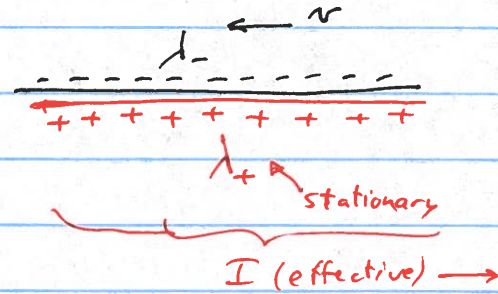 v
λ-
- - - - - - - - - -
+ + + + + + + + +
λ+
stationary
I (effective)